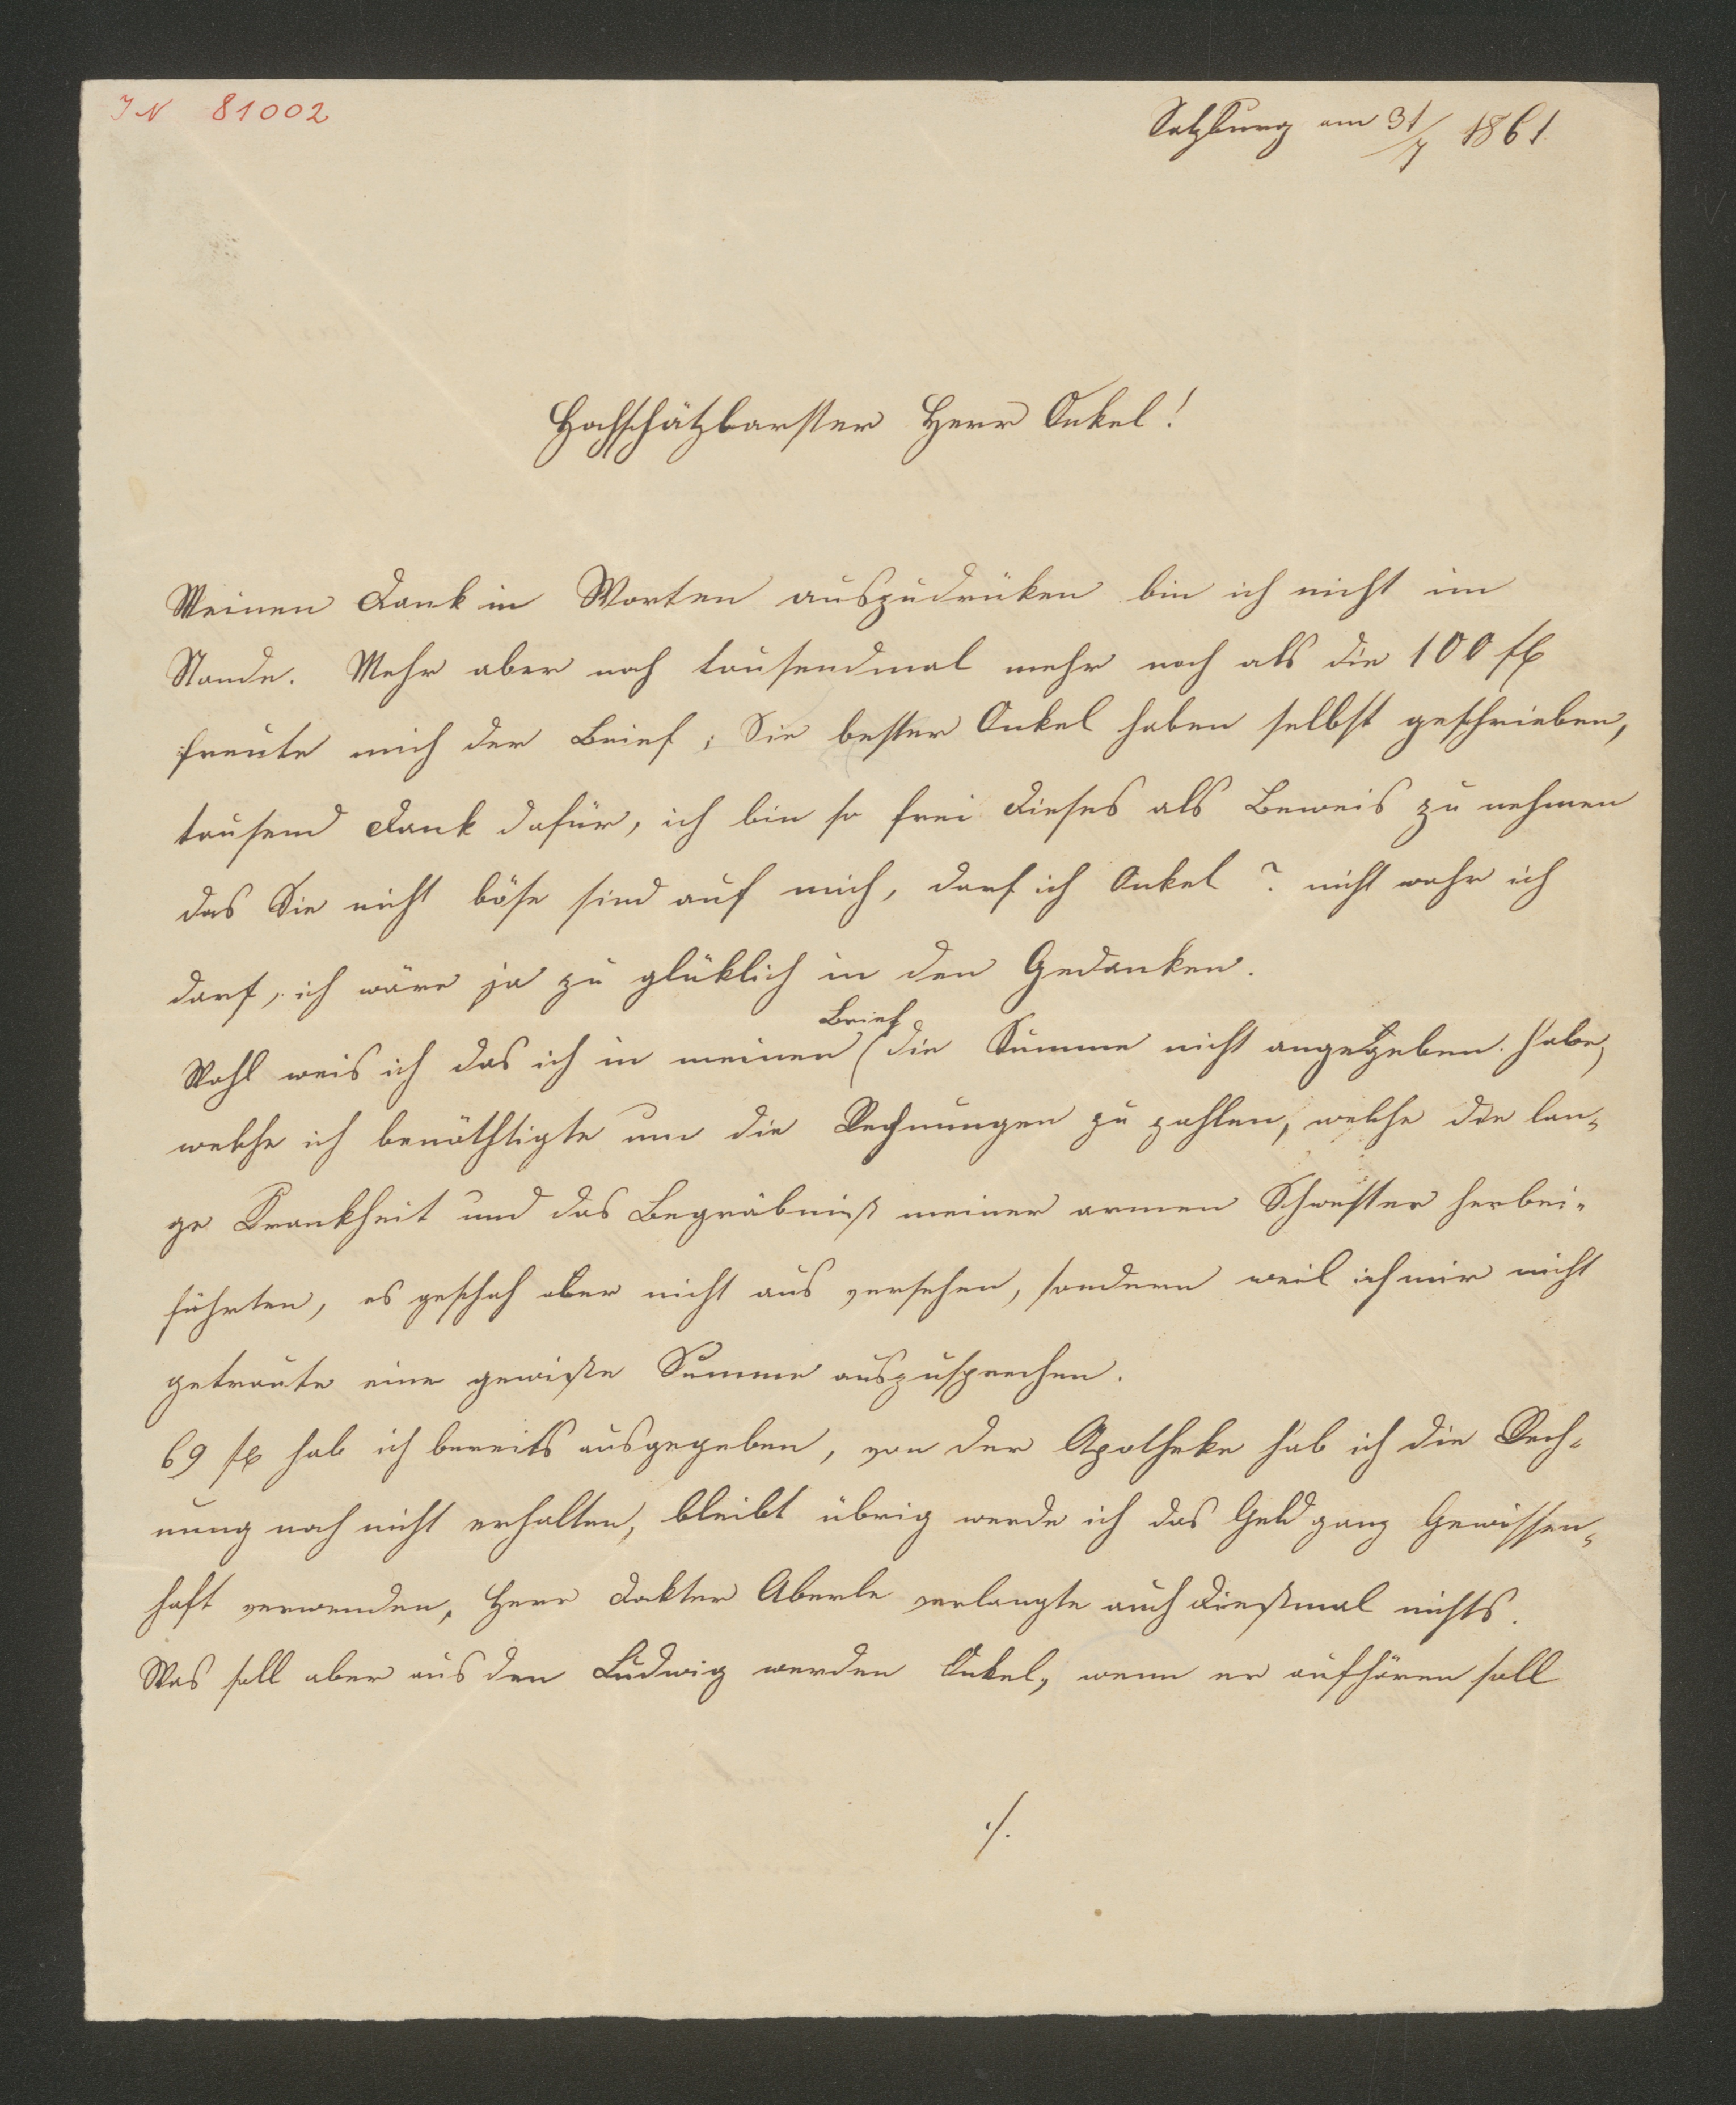 IN 81002
Salzburg am 31/7 1861
Hochschätzbarster Herr Onkel!
Meinen Dank in Worten auszudrüken bin ich nicht im
Stande. Mehr aber noch tausendmal mehr noch als die 100 fl
freute mich der Brief; Sie bester Onkel haben selbst geschrieben,
tausend Dank dafür, ich bin so frei dieses als Beweis zu nehmen
das Sie nicht böse sind auf mich, darf ich Onkel? nicht wahr ich
darf, ich wäre ja zu glüklich in den Gedanken.
Brief
Wohl weis ich das ich in meinen (die Summe nicht angegeben habe,
welche ich benöthtigte um die Rechnungen zu zahlen, welche die lan-
ge Krankheit und das Begräbniß meiner armen Schwester herbei-
führten, es geschah aber nicht aus versehen, sondern weil ich mir nicht
getraute eine gewiße Summe auszusprechen.
69 fl hab ich bereits ausgegeben, von der Apotheke hab ich die Rech-
nung noch nicht erhalten, bleibt übrig werde ich das Geld ganz Gewissen-
haft verwenden, Herr Dokter Aberle verlangte auch dießmal nichts.
Was soll aber aus den Ludwig werden Onkel, wenn er aufhören soll
./.